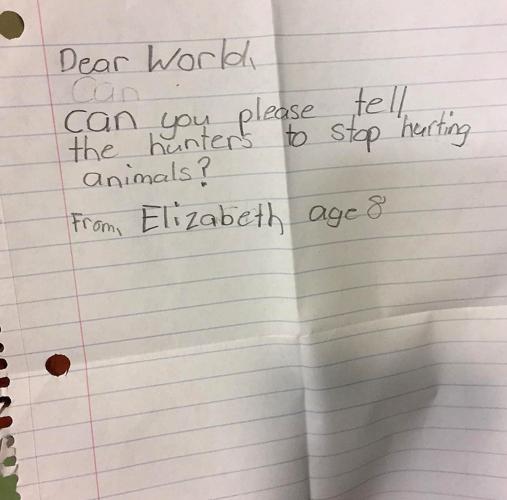 Dear World,
Can
can you please tell
the hunters to stop hurting
animals?
From, Elizabeth age 8